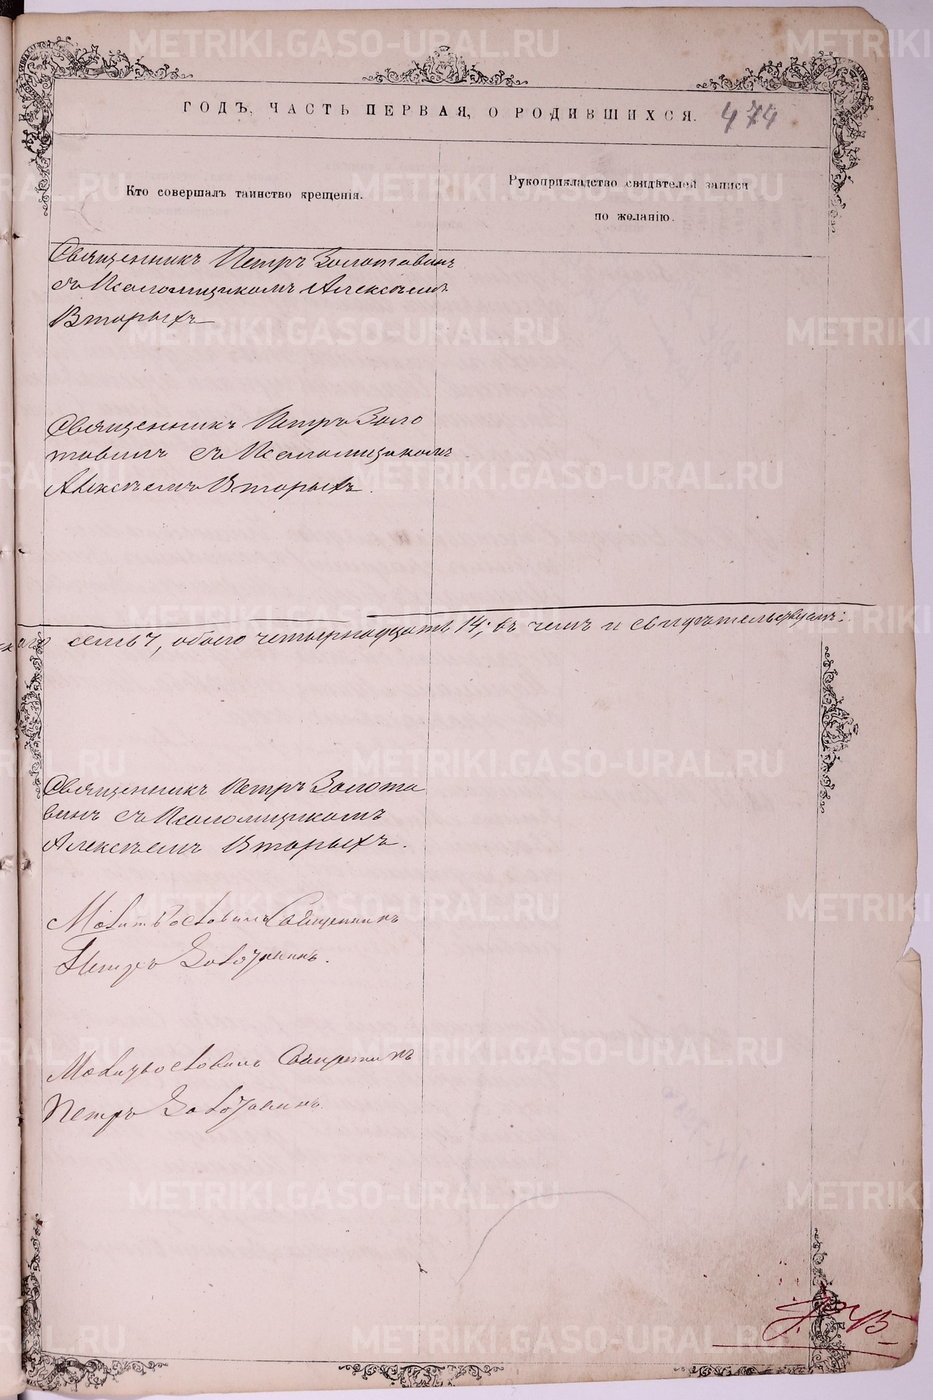 ГОДЪ, ЧАСТЬ ПЕРВАЯ, О РОДИВШИХСЯ. 474
Кто совершалъ таинство крещенія.
Рукоприкладство свидѣтелей записи
по желанію.
Священникъ Петръ Золотавинъ
съ Псаломщикомъ Алексѣемъ
Вторыхъ
Священникъ Петръ Золо
тавинъ съ Псаломщикомъ
Алексѣемъ Вторыхъ.
семь 7, обоего четырнадцать 14; въ чемъ и свидѣтельствуемъ:
Священникъ Петръ Золота
винъ съ Псаломщикомъ
Алексѣемъ Вторыхъ.
Молитвословилъ Священникъ
Петръ Золотавинъ.
Молитвословилъ Священникъ
Петръ Золотавинъ.
METRIKI.GASO-URAL.RU